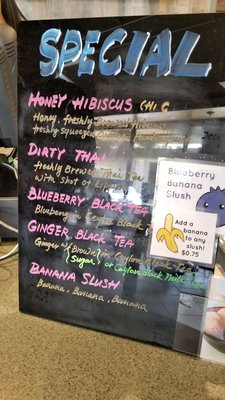 SPECIAL
HONEY HIBISCUS
Honey, freshly
freshly squeezed
DIRTY THAI
freshly Brewed Thai Tea
with shot of
BLUEBERRY BLACK TEA
Blueberry in Ceylon Black
GINGER BLACK TEA
Ginger w/ Brown in Ceylon Black Tea
Sugar or Ceylon Black Milk Tea
BANANA SLUSH
Banana, Banana, Banana
Blueberry
Banana
Slush
Add a
banana
to any
slush!
$0.75